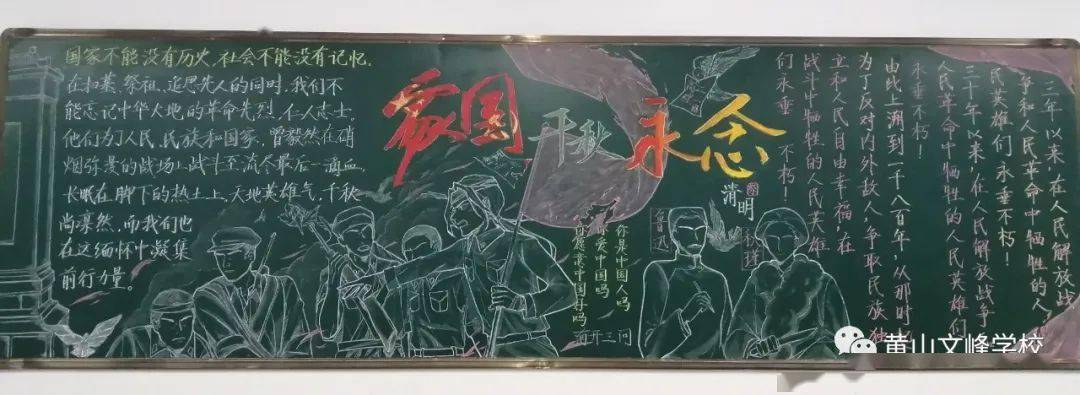 国家不能没有历史,社会不能没有记忆,
在扫墓、祭祖、追思先人的同时,我们不
能忘记中华大地的革命先烈、仁人志士。
他们为了人民、民族和国家,曾毅然在硝
烟弥漫的战场上,战斗至流尽最后一滴血,
长眠在脚下的热土上,天地英雄气,千秋
尚凛然,而我们也
在这缅怀中凝集
前行力量。
家国千秋永念
清明
你是中国人吗
你爱中国吗
你愿意中国好吗
南开三问
鲁迅
秋瑾
三年以来,在人民解放战
争和人民革命中牺牲的人
民英雄们永垂不朽!
三十年以来,在人民解放战争
人民革命中牺牲的人民英雄们
永垂不朽!
由此上溯到一千八百年,从那时
为了反对内外敌人,争取民族独
立和人民自由幸福,在
战斗中牺牲的人民英雄
们永垂不朽!
黄山文峰学校